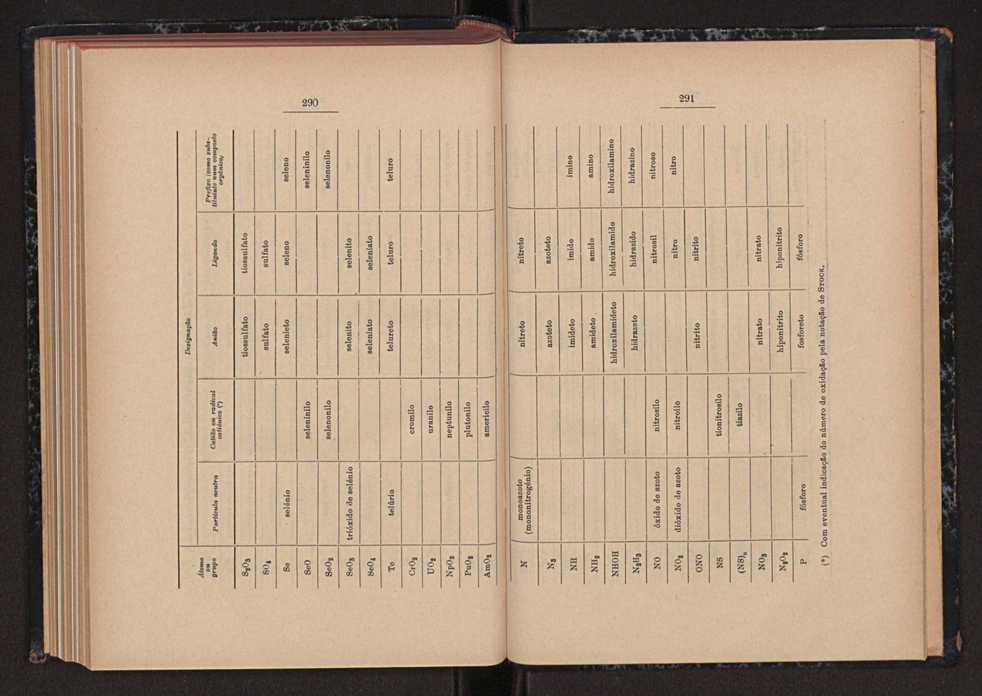 290
Designação
Átomo
ou
grupo
Partícula neutra
Catião ou radical
catiónico (*)
Anião
Ligando
Prefixo (como subs-
tituinte num composto
orgânico)
S₂O₃ tiossulfato tiossulfato
SO₄ sulfato sulfato
Se selénio selenieto seleno seleno
SeO seleninilo seleninilo
SeO₂ selenonilo selenonilo
SeO₃ trióxido de selénio selenito selenito
SeO₄ seleniato seleniato
Te telúrio telureto teluro teluro
CrO₂ cromilo
UO₂ uranilo
NpO₂ neptunilo
PuO₂ plutonilo
AmO₂ americilo
291
N monoazoto nitreto nitreto
(mononitrogénio)
N₃ azoteto azoteto
NH imideto imido imino
NH₂ amideto amido amino
NHOH hidroxilamideto hidroxilamido hidroxilamino
N₂H₃ hidrazeto hidrazido hidrazino
NO óxido de azoto nitrosilo nitrosil nitroso
NO₂ dióxido de azoto nitroilo nitro nitro
ONO nitrito nitrito
NS tionitrosilo
(NS)ₙ tiazilo
NO₃ nitrato nitrato
N₂O₂ hiponitrito hiponitrito
P fósforo fosforeto fósforo
(*) Com eventual indicação do número de oxidação pela notação de STOCK.